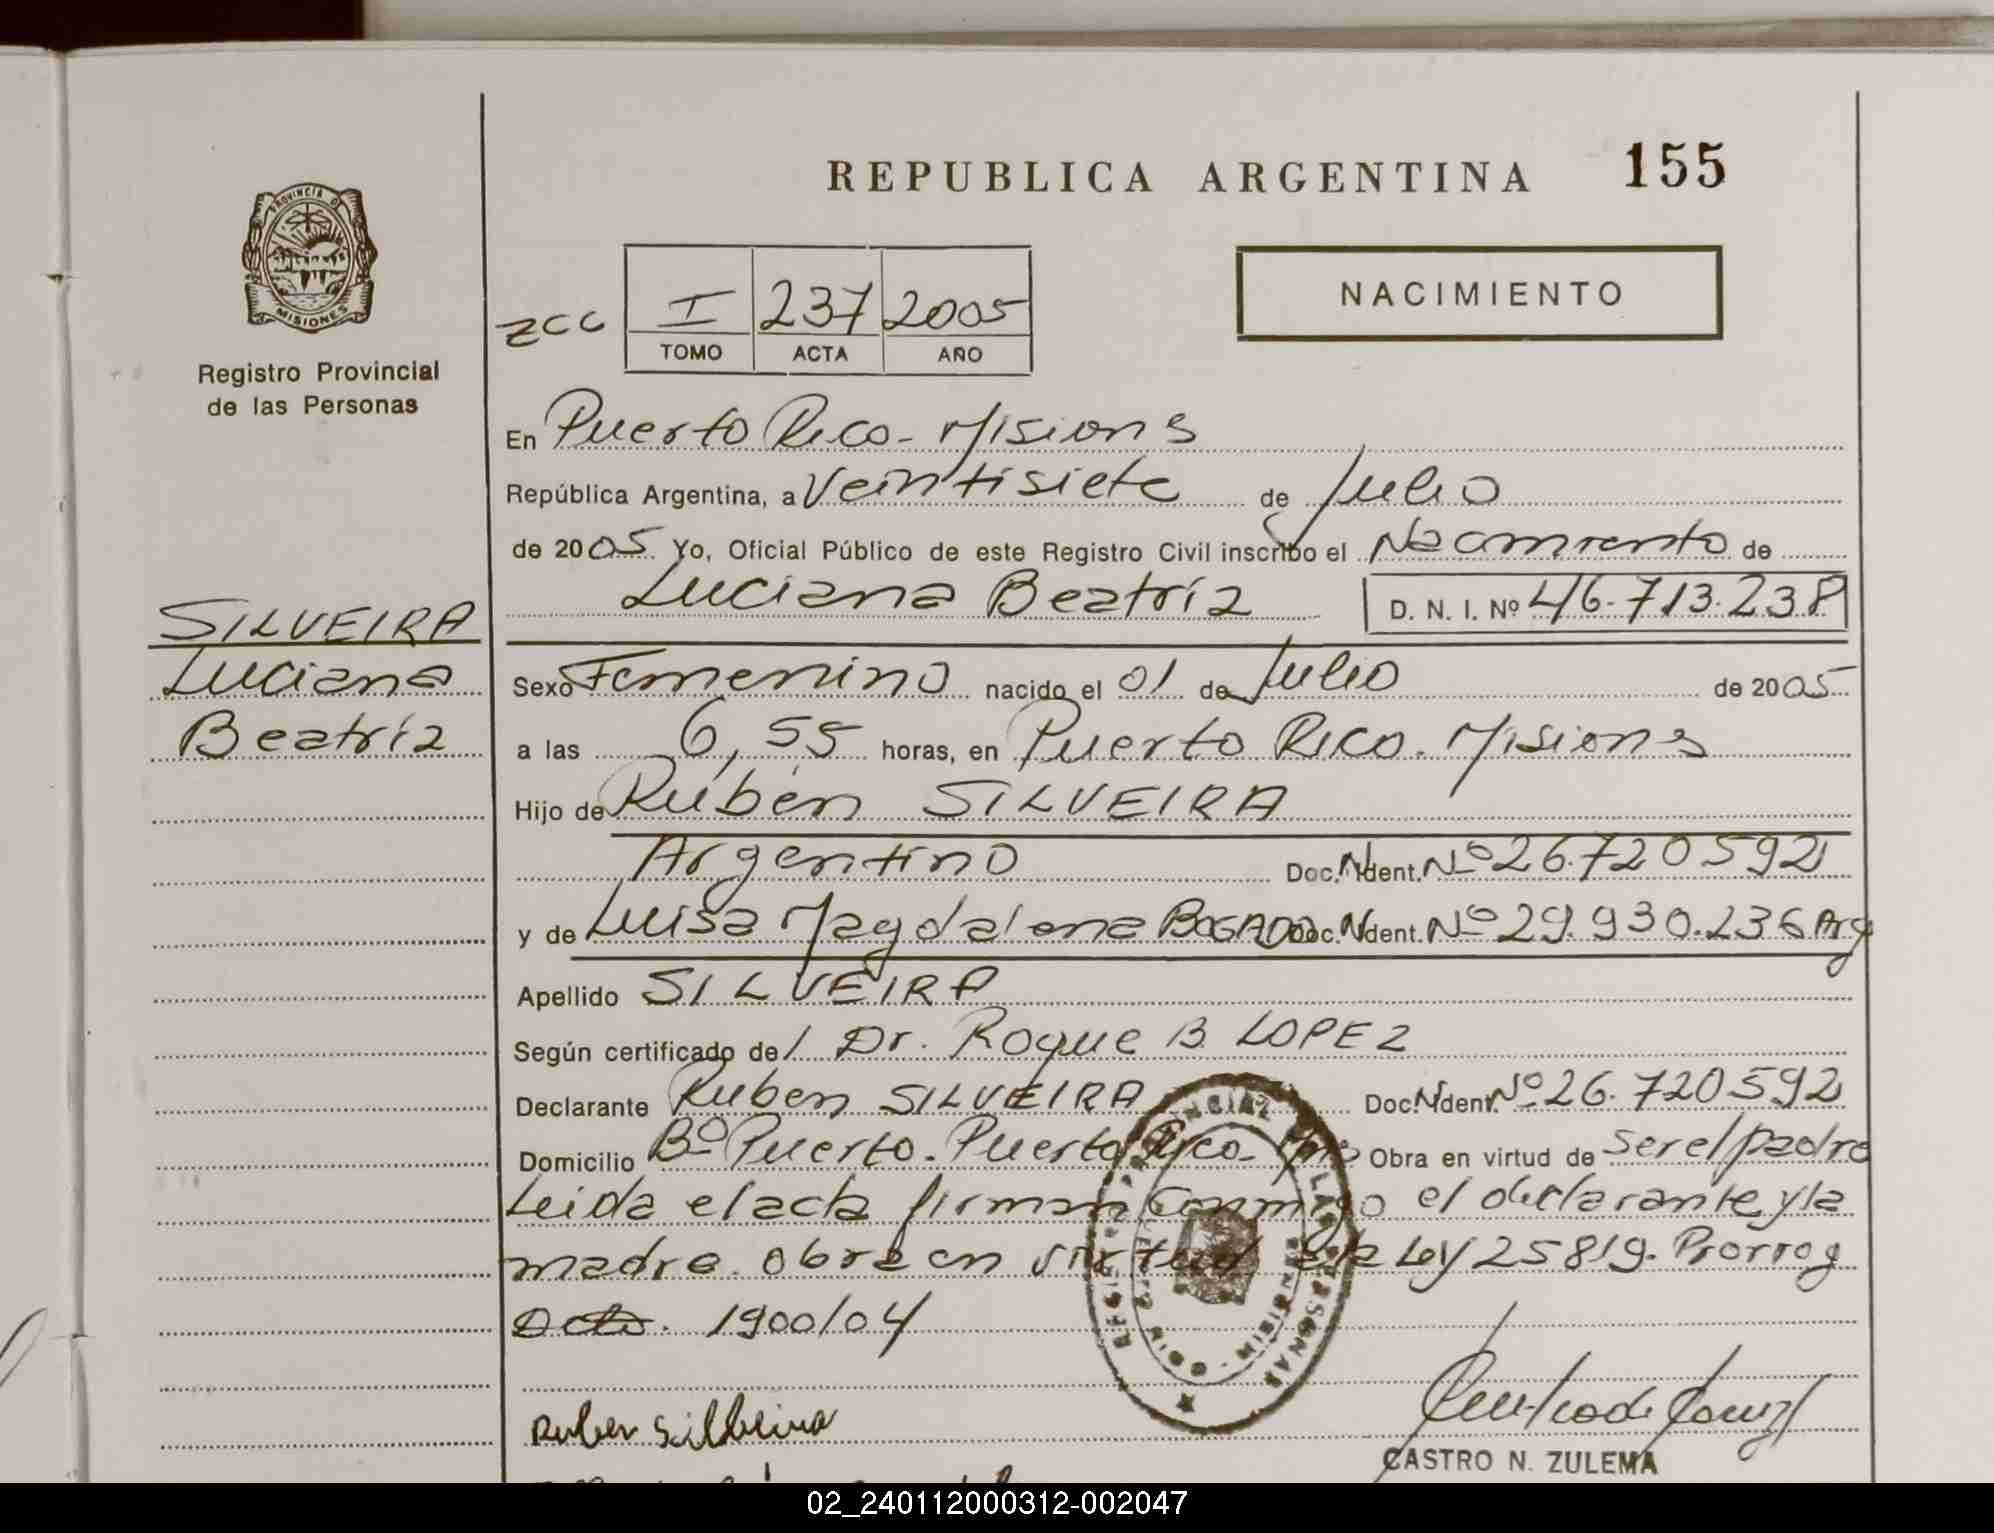 REPUBLICA ARGENTINA 155
PROVINCIA D
MISIONES
Registro Provincial
de las Personas
ZCC I 237 2005
TOMO ACTA AÑO
NACIMIENTO
En Puerto Rico - Misiones
República Argentina, a Veintisiete de Julio
de 2005. Yo, Oficial Público de este Registro Civil inscribo el Nacimiento de
Luciana Beatríz D. N. I. Nº 46.713.238
SILVEIRA
Luciana
Beatríz
Sexo Femenino nacido el 01 de Julio de 2005
a las 6,55 horas, en Puerto Rico - Misiones
Hijo de Rubén SILVEIRA
Argentino Doc. Ident. Nº 26.720592
y de Luisa Magdalena BOGADO Doc. Ident. Nº 29.930.236 Arg
Apellido SILVEIRA
Según certificado del Dr. Roque B. LOPEZ
Declarante Ruben SILVEIRA Doc. Ident. Nº 26.720592
Domicilio Bº Puerto. Puerto Rico - Mnes Obra en virtud de ser el padre
Leida el acta firman conmigo el declarante y la
madre. obra en virtud de la Ley 25819. Prorrog
Dcto. 1900/04
Ruben Silbeira
CASTRO N. ZULEMA
02_240112000312-002047